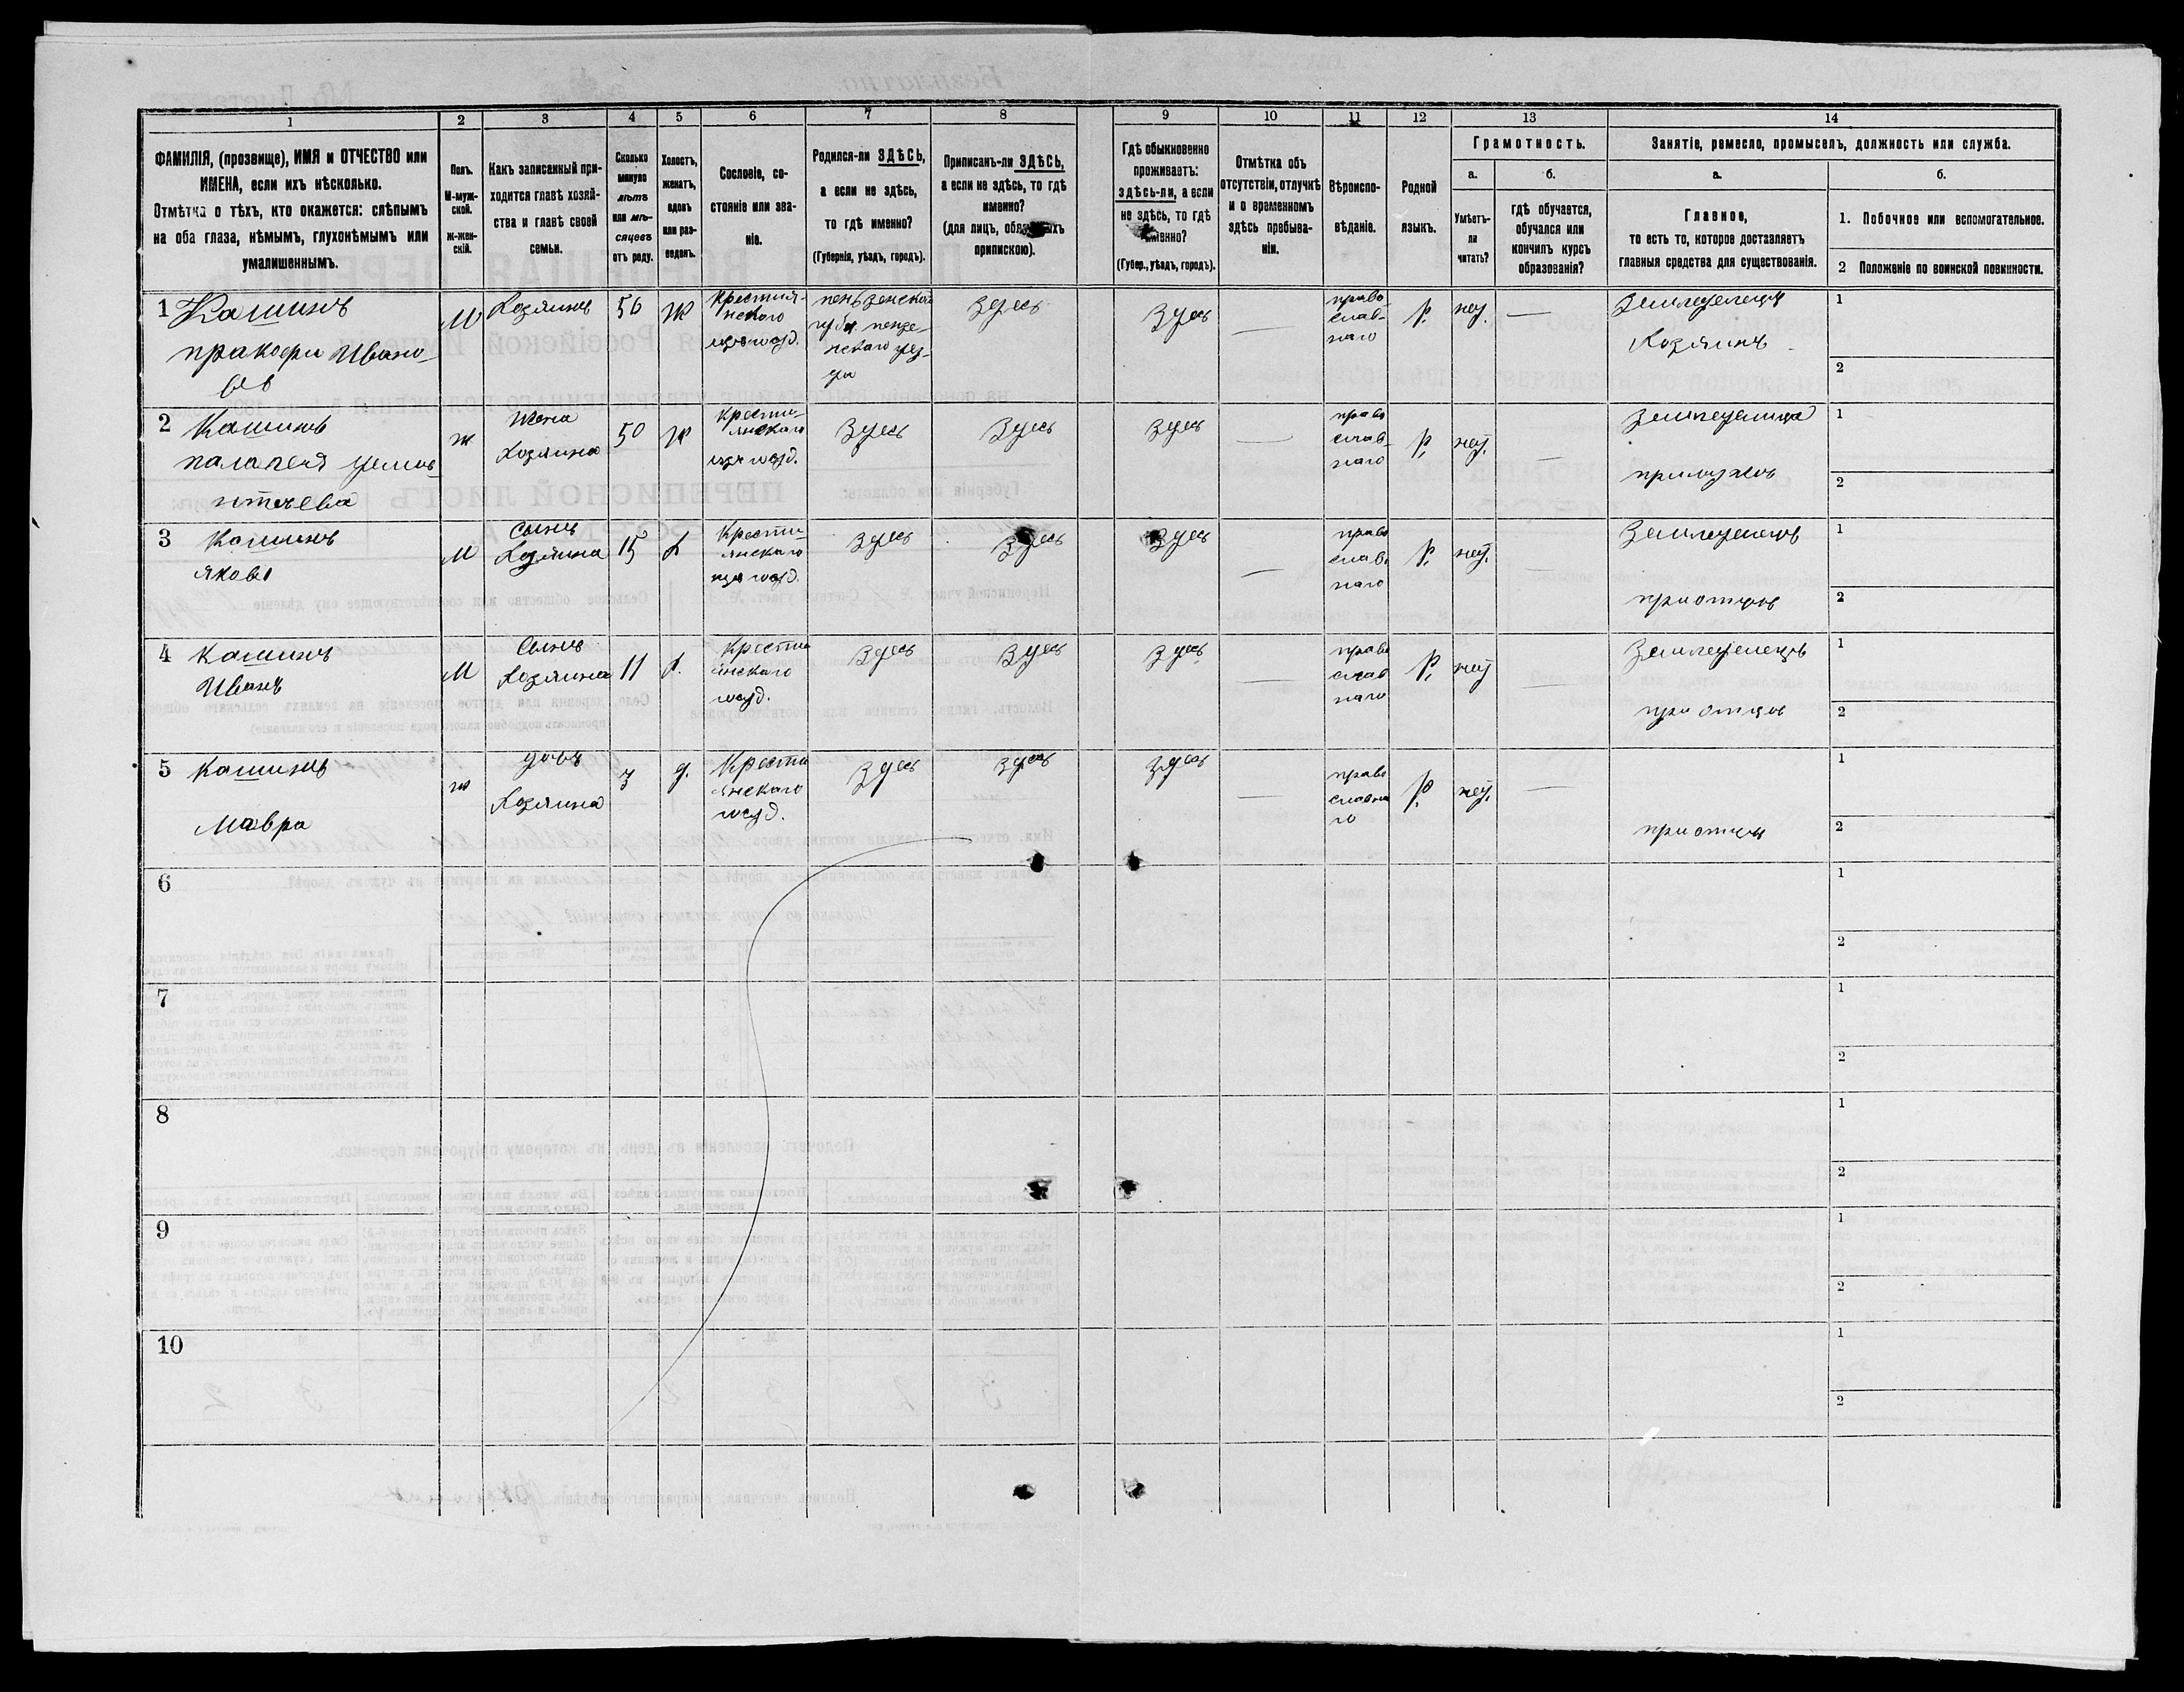 1
2
3
4
5
6
7
8
9
10
11
12
13
14
ФАМИЛІЯ, (прозвище), ИМЯ и ОТЧЕСТВО или
ИМЕНА, если ихъ нѣсколько.
Отмѣтка о тѣхъ, кто окажется: слѣпымъ
на оба глаза, нѣмымъ, глухонѣмымъ или
умалишеннымъ.
Полъ.
М-муж-
ской.
ж-жен-
скій.
Какъ записанный при-
ходится главѣ хозяй-
ства и главѣ своей
семьи.
Сколько
минуло
лѣтъ
или мѣ-
сяцевъ
отъ роду.
Холостъ,
женатъ,
вдовъ
или раз-
веденъ.
Сословіе, со-
стояніе или зва-
ніе.
Родился-ли ЗДѢСЬ,
а если не здѣсь,
то гдѣ именно?
(Губернія, уѣздъ, городъ).
Приписанъ-ли ЗДѢСЬ,
а если не здѣсь, то гдѣ
именно?
(для лицъ, обязанныхъ
припискою).
Гдѣ обыкновенно
проживаетъ:
здѣсь-ли, а если
не здѣсь, то гдѣ
именно?
(Губер., уѣздъ, городъ).
Отмѣтка объ
отсутствіи, отлучкѣ
и о временномъ
здѣсь пребыва-
ніи.
Вѣроиспо-
вѣданіе.
Родной
языкъ.
Грамотность.
а.
Умѣетъ-
ли
читать?
б.
гдѣ обучается,
обучался или
кончилъ курсъ
образованія?
Занятіе, ремесло, промыселъ, должность или служба.
а.
Главное,
то есть то, которое доставляетъ
главныя средства для существованія.
б.
1. Побочное или вспомогательное.
2 Положеніе по воинской повинности.
1 Кашинъ
пракофи Ивано-
въ
М
Хозяинъ
50
Ж
крестия-
нского
пензенской
губ. пензе-
нскаго уез-
да
Здесь
Здесь
—
право-
слав-
наго
р.
нет.
—
Земледелецъ
Хозяинъ
1
2
2 Кашинъ
палагея
ж
жена
хозяина
50
ж
крести-
янскаго
Здесь
Здесь
Здесь
—
право
слав-
наго
р.
нет.
—
Земледелица
примужеъ
1
2
3 Кашинъ
яковъ
М
сынъ
хозяина
15
х
Крести-
янскаго
здесь
здесь
здесь
—
право
слав.
наго
р.
нет.
—
Земледелецъ
приотцъ
1
2
4 Кашинъ
Иванъ
М
сынъ
хозяина
11
х.
крести
янскаго
здесь
здесь
здесь
—
право
слав
наго
р.
нет
—
Земледелецъ
при отцъ
1
2
5 Кашинъ
Мавра
ж
дочь
хозяина
3
д.
Крести
янскаго
здесь
здесь
здесь
—
право
славна
го
р.
нет.
—
приотцъ
1
2
6
1
2
7
1
2
8
1
2
9
1
2
10
1
2